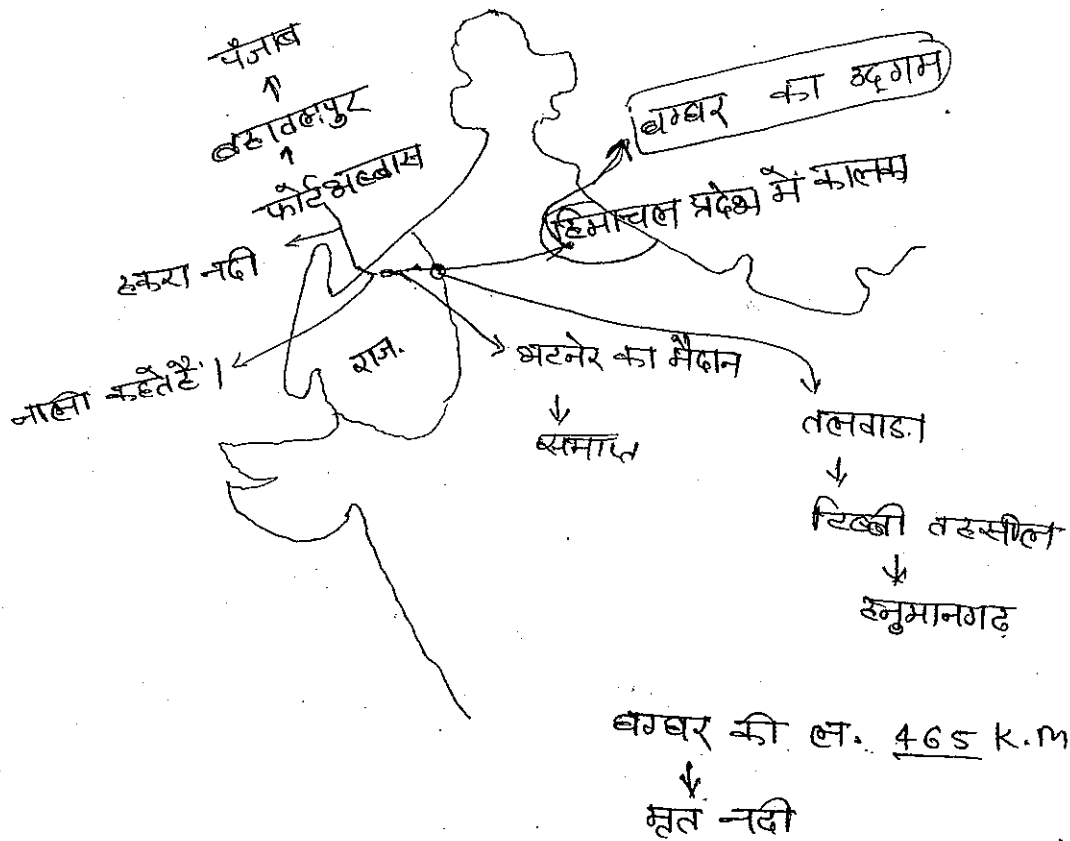 पंजाब
↑
बहावलपुर
↑
फोर्टअब्बास
हकरा नदी
नाली कहते हैं।
राज.
घग्घर का उद्गम
हिमाचल प्रदेश में कालका
भटनेर का मैदान
↓
समाप्त
तलवाडा
↓
टिब्बी तहसील
↓
हनुमानगढ़
घग्घर की ल. 465 K.m
↓
मृत नदी